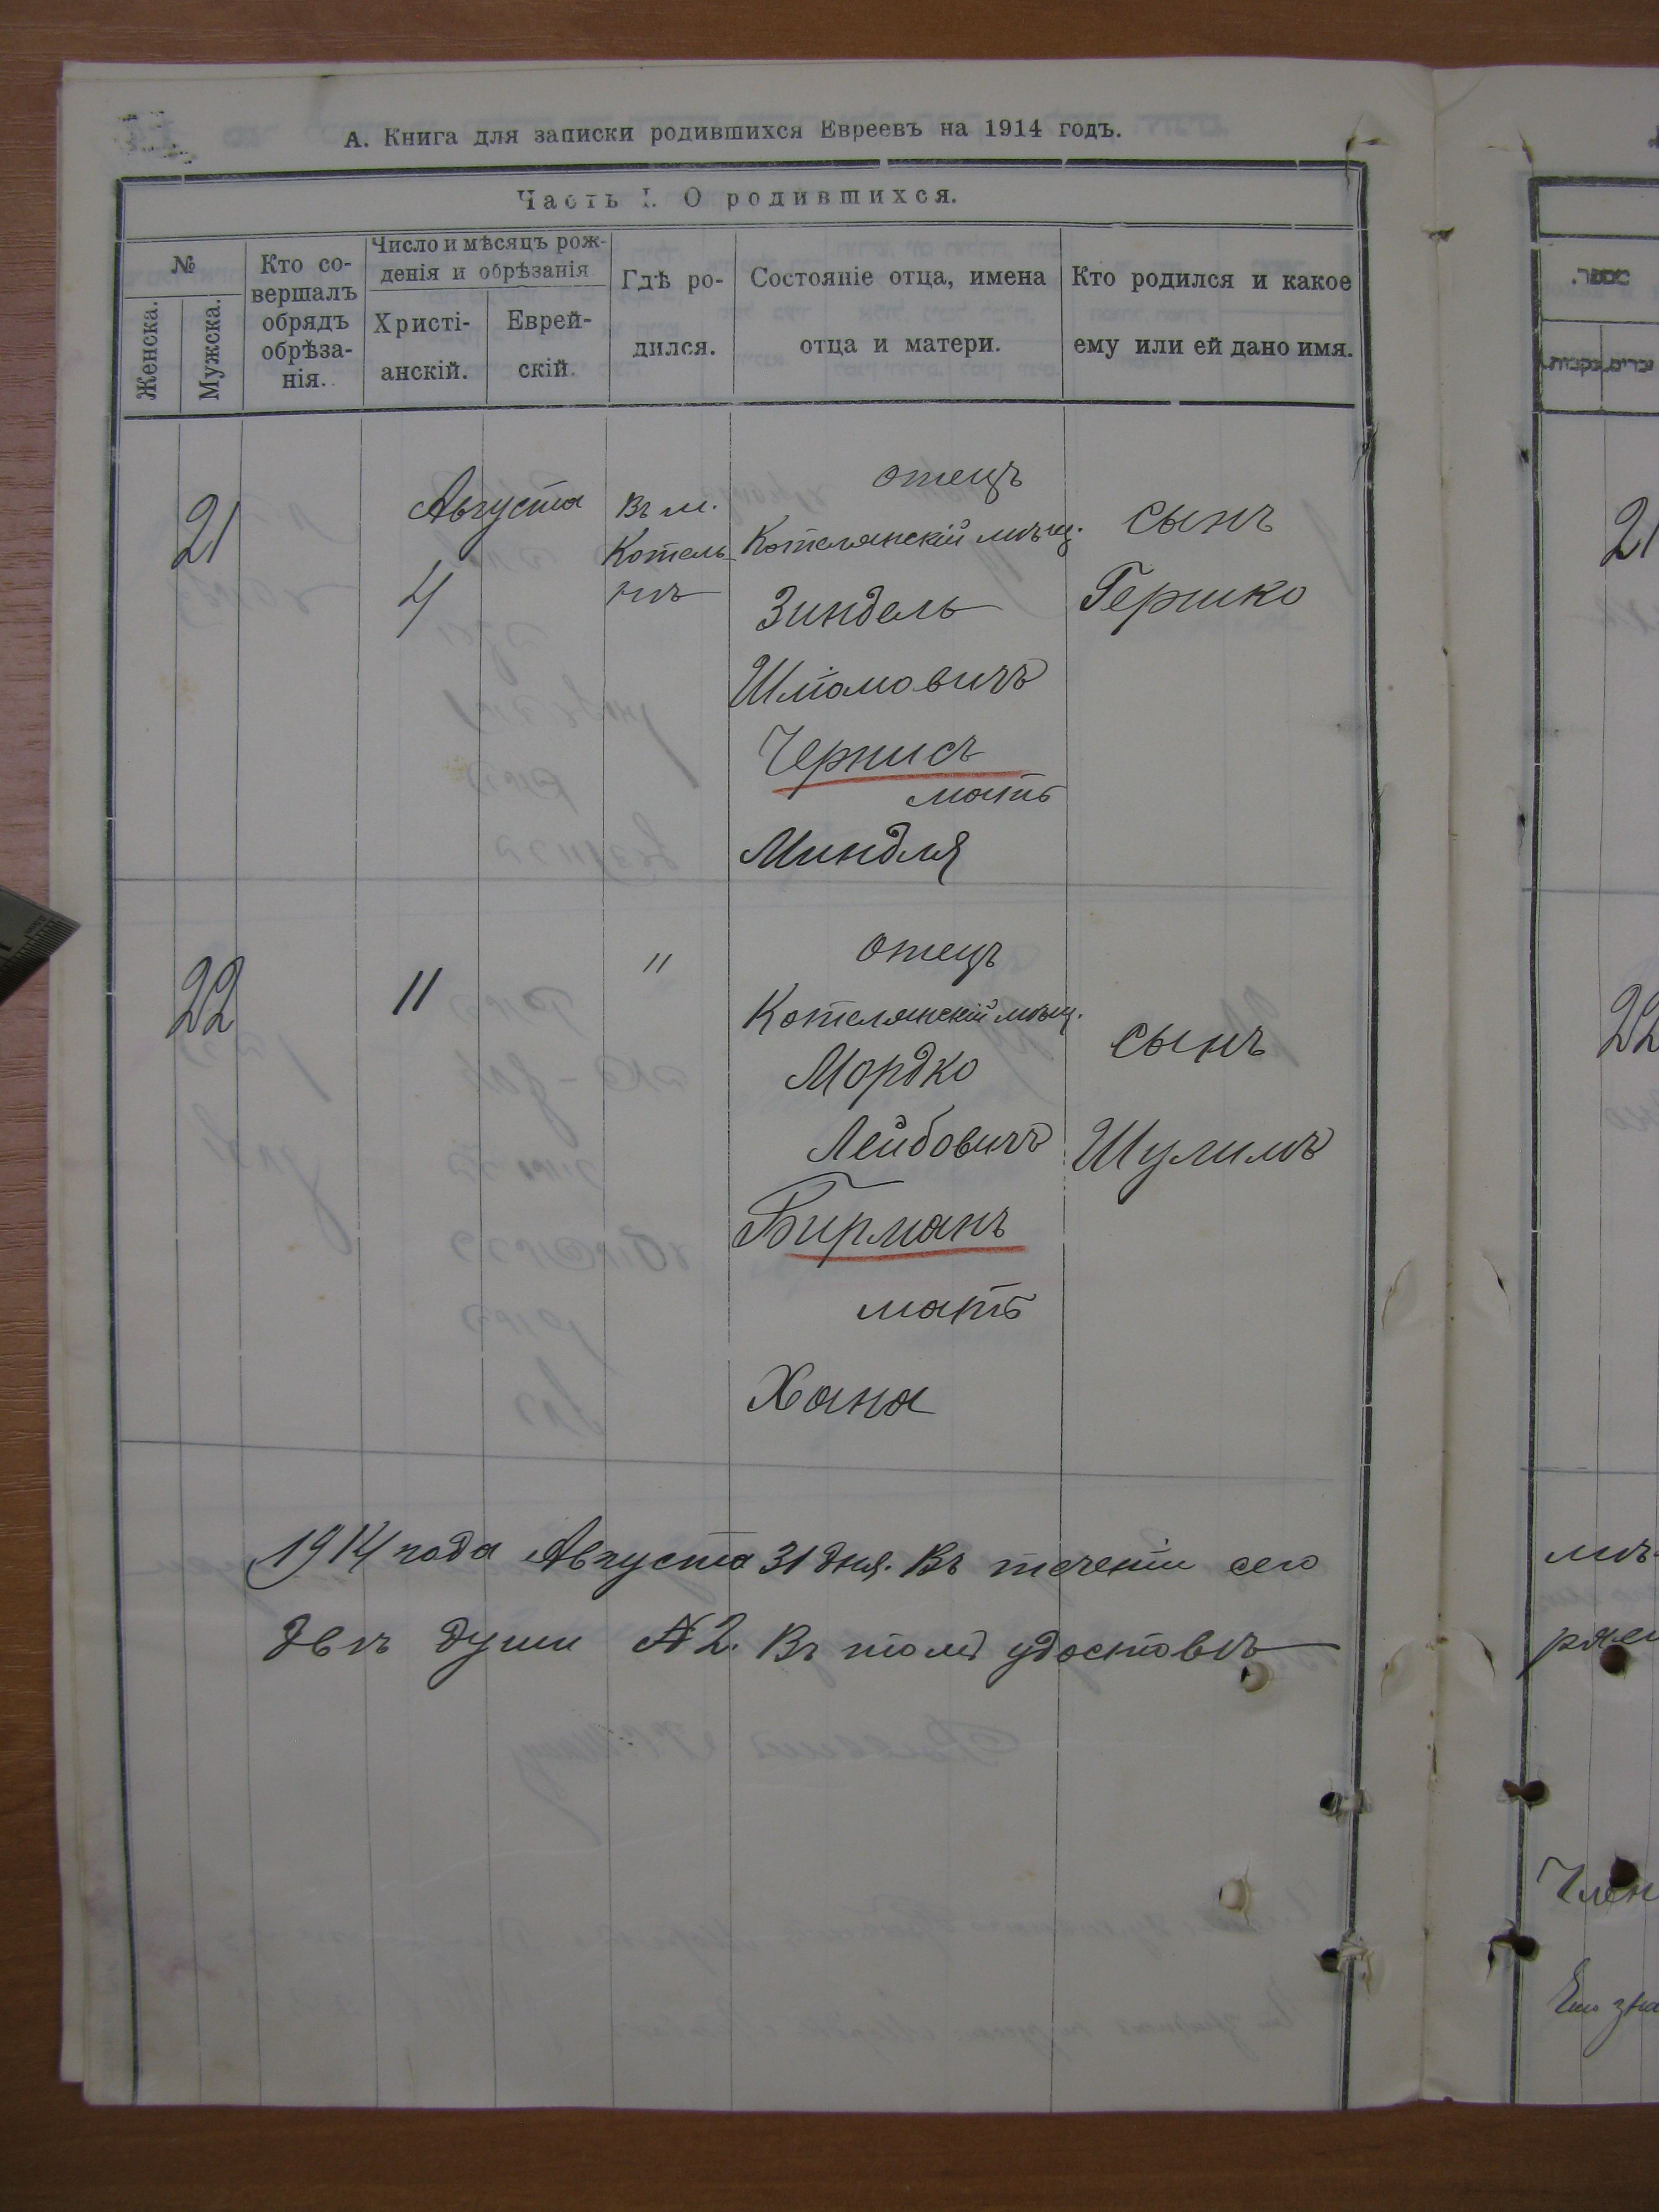 А. Книга для записки родившихся Евреевъ на 1914 годъ.
Часть I. О родившихся.
№
Женска.
Мужска.
Кто со-
вершалъ
обрядъ
обрѣза-
нія.
Число и мѣсяцъ рож-
денія и обрѣзанія
Христі-
анскій.
Еврей-
скій.
Гдѣ ро-
дился.
Состояніе отца, имена
отца и матери.
Кто родился и какое
ему или ей дано имя.
21
Августа
4
Въ м.
Котель-
нѣ
отецъ
Котелянскій мѣщ.
Зиндель
Шліомовичъ
Чернисъ
мать
Миндля
сынъ
Гершко
22
11
"
отецъ
Котелянскій мѣщ.
Мордко
Лейбовичъ
Бирманъ
мать
Хана
сынъ
Шулимъ
1914 года Августа 31 дня. Въ теченіи сего
двѣ души № 2. Въ томъ удостовѣ
מספר.
זכרים
נקבות
21
22
мѣ-
Член